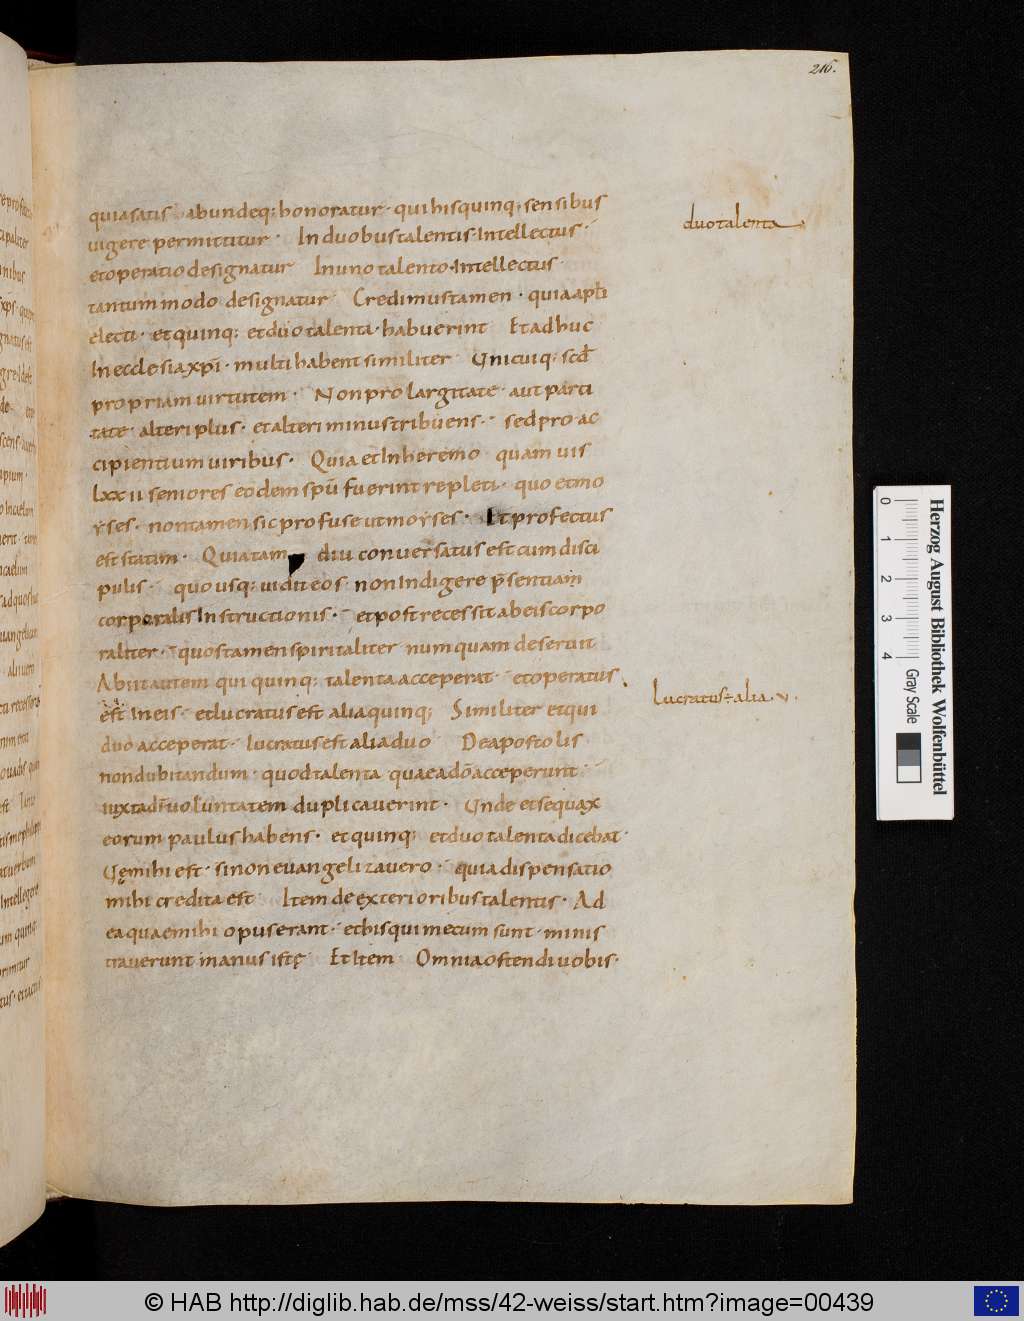 216.
quia satis abundeq; honoratur · qui his quinq; sensibus
uigere permittitur · In duobus talentis · Intellectus ·
et operatio designatur In uno talento · Intellectus
tantum modo designatur Credimus tamen · quia apłi
electi · et quinq; et duo talenta · habuerint Et adhuc
In ecclesia xp̄i · multi habent similiter Unicuiq; scđ
propriam uirtutem · Non pro largitate · aut parti
tate · alteri plus · et alteri minus tribuens · sed pro ac
cipientium uiribus · Quia et In heremo quamuis
lxxii seniores eodem spū fuerint repleti · quo et mo
yses · non tamen sic profuse ut moyses · Et profectus
est statim · Quia tam diu conuersatus est cum disci
pulis · quo usq; uidit eos non Indigere p̄sentiam
corporalis Instructionis · et postrecessit ab eis corpo
raliter · quos tamen spiritaliter numquam deseruit
Abiit autem qui quinq; talenta acceperat · et operatus
est In eis · et lucratus est alia quinq; Similiter et qui
duo acceperat · lucratus est alia duo De apostolis
non dubitandum · quod talenta quae a dō acceperunt ·
iuxta dn̄i uoluntatem duplicauerint · Unde et sequax
eorum paulus habens · et quinq; et duo talenta dicebat ·
Uę mihi est · si non euangelizauero · quia dispensatio
mihi credita est Item de exterioribus talentis · Ad
ea quae mihi opus erant · et his qui mecum sunt · minis
trauerunt manus istę Et Item Omnia ostendi uobis ·
duo talenta
Lucratus ÷ alia · v ·
Herzog August Bibliothek Wolfenbüttel
0 1 2 3 4 Gray Scale
© HAB http://diglib.hab.de/mss/42-weiss/start.htm?image=00439